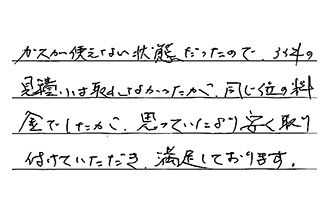 ガスが使えない状態だったので、他の
見積りは取れなかったが、同じ位の料
金でしたが、思っていたより安く取り
付けていただき、満足しております。